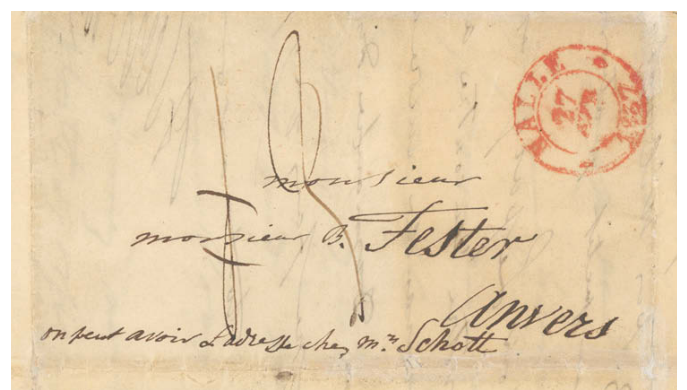 HALLE
27
APR
monsieur
monsieur B. Fester
Anvers
on peut avoir L'adresse chez mrs Schott